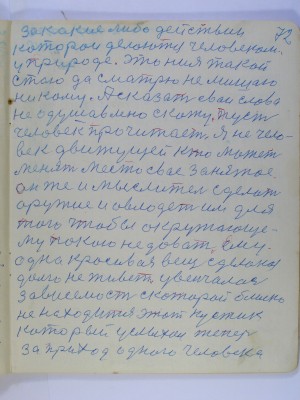 72
за какие либо действии
которои делоюти человеком
у природе. Это ния такой
стого да сматрю не мишаю
никому. А сказат сваи слова
не одушавлно скожу, пуст
человек прочитает. Я не чело-
век движущей кто может
менят место свае занятое.
он же и мыслител сделат
оружие и овлодет им для
того чтобы окружающе-
му покою не доват ему.
одна кросовая вещ сделана
долго не живет, увенчалас
зависемост с которой близко
не находится этот кустик
который услихал теперь
за приход одного человека